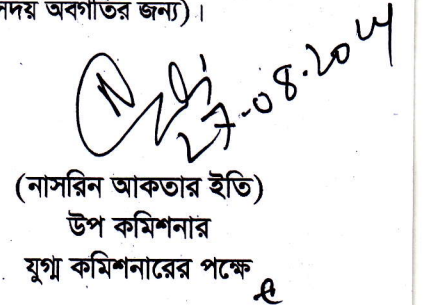 সদয় অবগতির জন্য)।
27-08-2014
(নাসরিন আকতার ইতি)
উপ কমিশনার
যুগ্ম কমিশনারের পক্ষে